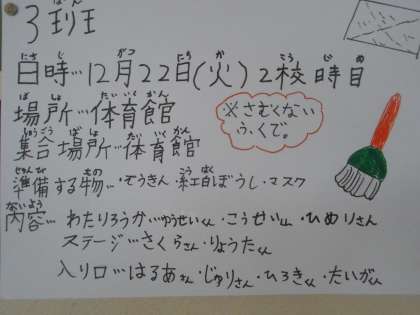 3班
日時…12月22日(火)2校時目
場所…体育館
※さむくない
ふくで。
集合場所…体育館
準備する物…・ぞうきん・紅白ぼうし・マスク
内容…わたりろうか…ゆうせいくん・こうせいくん・ひめりさん
ステージ…さくらさん・りょうたくん
入り口…はるあさん・じゅりさん・ひろきくん・たいがくん